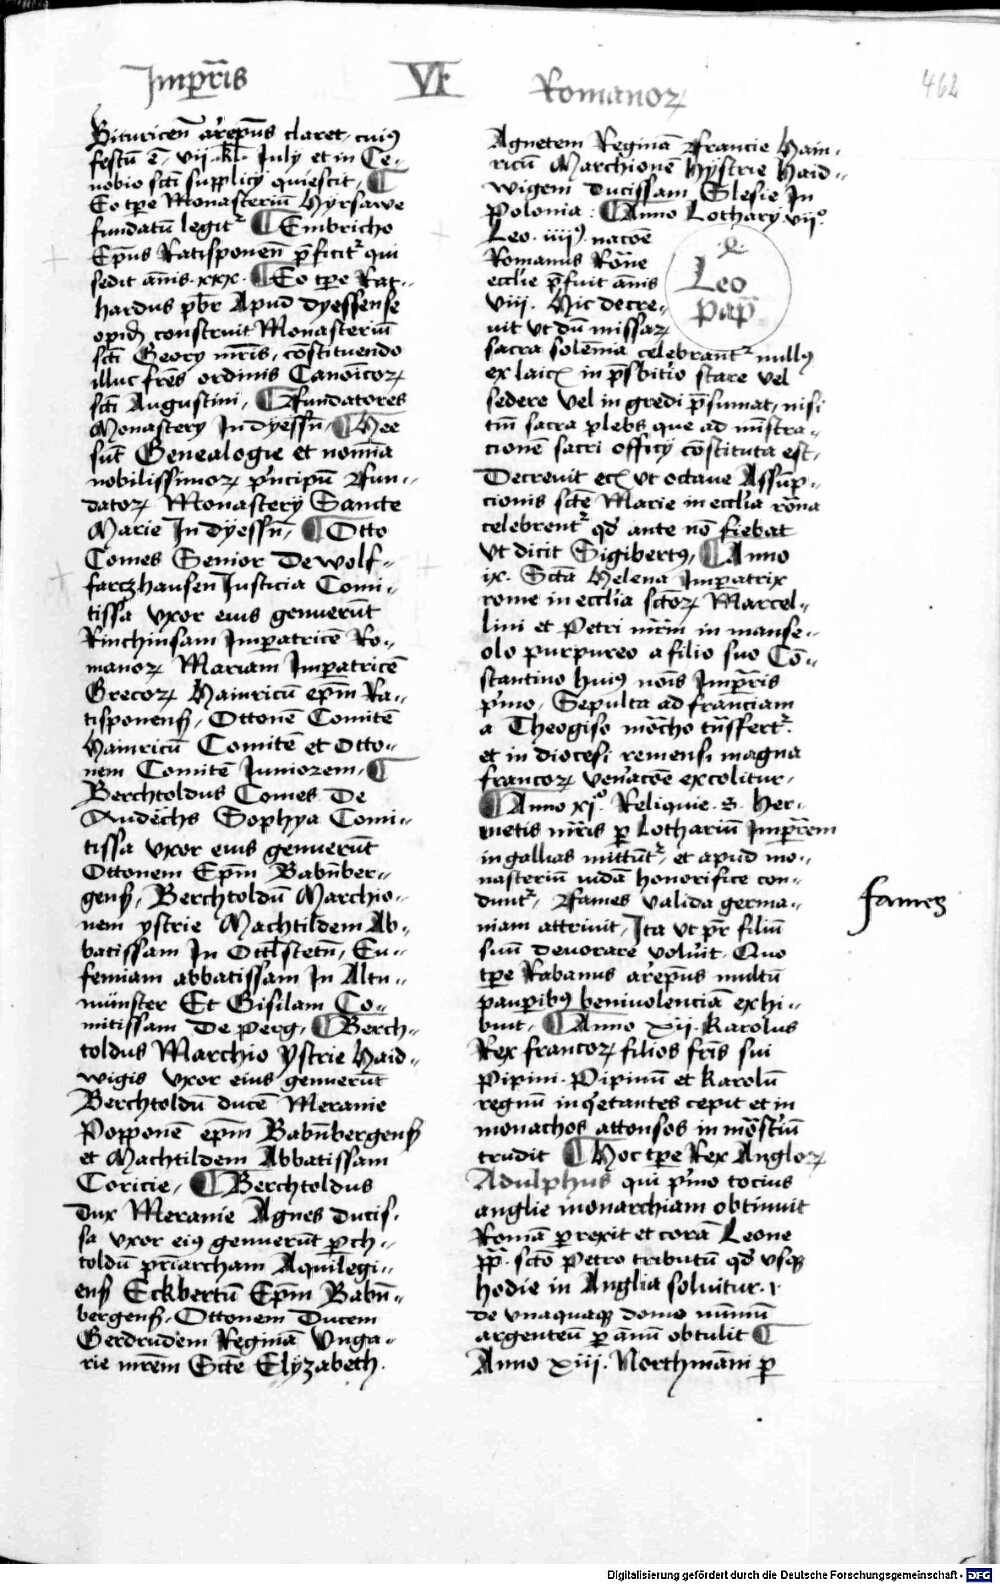 Imꝑr̄is VI Romanoꝝ
462
Bituricen̄ ar̄epūs claret, cuiꝰ
festū ē, vij. kl. July et in Ce-
nobio sc̄ti supplicij quiescit, ¶
Eo tꝑe Monasteriū Hyrsawe
fundatū legitᷣ ¶ Embricho
Ep̄us Ratisponen̄ p̄ficitᷣ qui
sedit an̄nis. xxx. ¶ Eo tꝑe Rat-
hardus pb̄r Apud dyessense
opid̄ construit Monasteriū
sc̄ti Georij mr̄is, cōstituendo
illuc fr̄es ordinis Canōicoꝝ
sc̄ti Augustini, ¶ ffundatores
Monasterij In dyessn̄, ¶ Hee
sūt Genealogie et noīna
nobilissimoꝝ p̄ncipū ffun-
datoꝝ Monasterij Sancte
Marie In dyessn̄, ¶ Otto
Comes Senior De wolf-
fartzhausen Justicia Comi-
tissa vxor eius genuerūt
Rinchinsam Imꝑatricē Ro-
manoꝝ Mariam Imꝑatricē
Grecoꝝ Hainricū ep̄m Ra-
tisponens̄, Ottonē Comitē
Hainricū Comitē et Otto-
nem Comitē Juniorem, ¶
Berchtoldus Comes De
Andechs Sophya Comi-
tissa vxor eius genuerūt
Ottonem Ep̄m Babn̄ber-
gens̄, Berchtoldū Marchio-
nem ystrie Machtildem Ab-
batissam In Ottlstetn̄, Eu-
femiam abbatissam In Altn-
münster Et Gisilam Co-
mitissam De perg, ¶ Berch-
toldus Marchio ystrie Haid-
wigis vxor eius genuerūt
Berchtoldū ducē Meranie
Popponē ep̄m Babn̄bergens̄
et Machtildem Abbatissam
Coricie, ¶ Berchtoldus
Dux Meranie Agnes ducis-
sa vxor eiꝰ genuerūt ꝑch-
toldū pr̄iarcham Aquilegi-
ens̄ Eckbertū Ep̄m Babn̄-
bergens̄, Ottonem Ducem
Gerdrudem Reginā Vnga-
rie mr̄em Sc̄te Elyzabeth.
Agnetem Reginā ffrancie Hain-
ricū Marchionē Hystrie Haid-
wigem ducissam Slesie In
Polonia: ¶ Anno Lotharij. vij°
Leo. iiijꝰ. nacōe
Romanus Rōne
ecclie p̄fuit an̄is
viij. Hic decre-
uit vt dū missaꝝ
sacra solēnia celebrantᷣ nullꝰ
ex laicꝭ in p̄sbitr̄io stare vel
sedere vel in gredi p̄sumat, nisi
tm̄ sacra plebs que ad mīstra-
cionē sacri officij cōstituta est.
Leo
pap̄
Decreuit ecꝭ vt octaue Assūp-
cionis sc̄te Marie in ecclia rōna
celebrentᷣ qd̄ ante nō fiebat
vt dicit Sigibertꝰ, ¶ Anno
ix. Sc̄ta Helena Imꝑatrix
rome in ecclia sc̄toꝝ Marcel-
lini et Petri mr̄m in manse-
olo purpureo a filio suo Cō-
stantino huiꝰ noīs Imꝑr̄is
p̄mo, Sepulta ad franciam
a Theogiso mōcho tn̄sfertᷣ.
et in diocesi remensi magna
francoꝝ ven̄acōe excolitur,
¶ Anno xj° Reliquie. s. Her-
metis mr̄is ꝑ Lothariū Imꝑr̄em
in gallias mittūtᷣ, et apud mo-
nasteriū indā honorifice con-
duntᷣ, ffames valida germa-
niam attriuit, Ita vt pr̄ filiū
suū deuorare voluit. Quo
tꝑe Rabanus ar̄epūs multū
pauꝑibꝰ beniuolenciā exhi-
buit, ¶ Anno xij. Karolus
Rex francoꝝ filios fr̄is sui
Pipini. Pipinū et Karolū
regnū inq̄etantes cepit et in
monachos attonsos in mōst̄iū
trudit ¶ Hoc tꝑe Rex Angloꝝ
Adulphus qui p̄mo tocius
anglie monarchiam obtinuit
Romā ꝑrexit et corā Leone
pp̄. sc̄to Petro tributū qd̄ vsqꝫ
hodie in Anglia soluitur. i.
de vnaquaqꝫ domo nūmū
argenteū ꝑ an̄nū obtulit ¶
Anno xiij. Northmāni ꝑ
fames
Digitalisierung gefördert durch die Deutsche Forschungsgemeinschaft - DFG